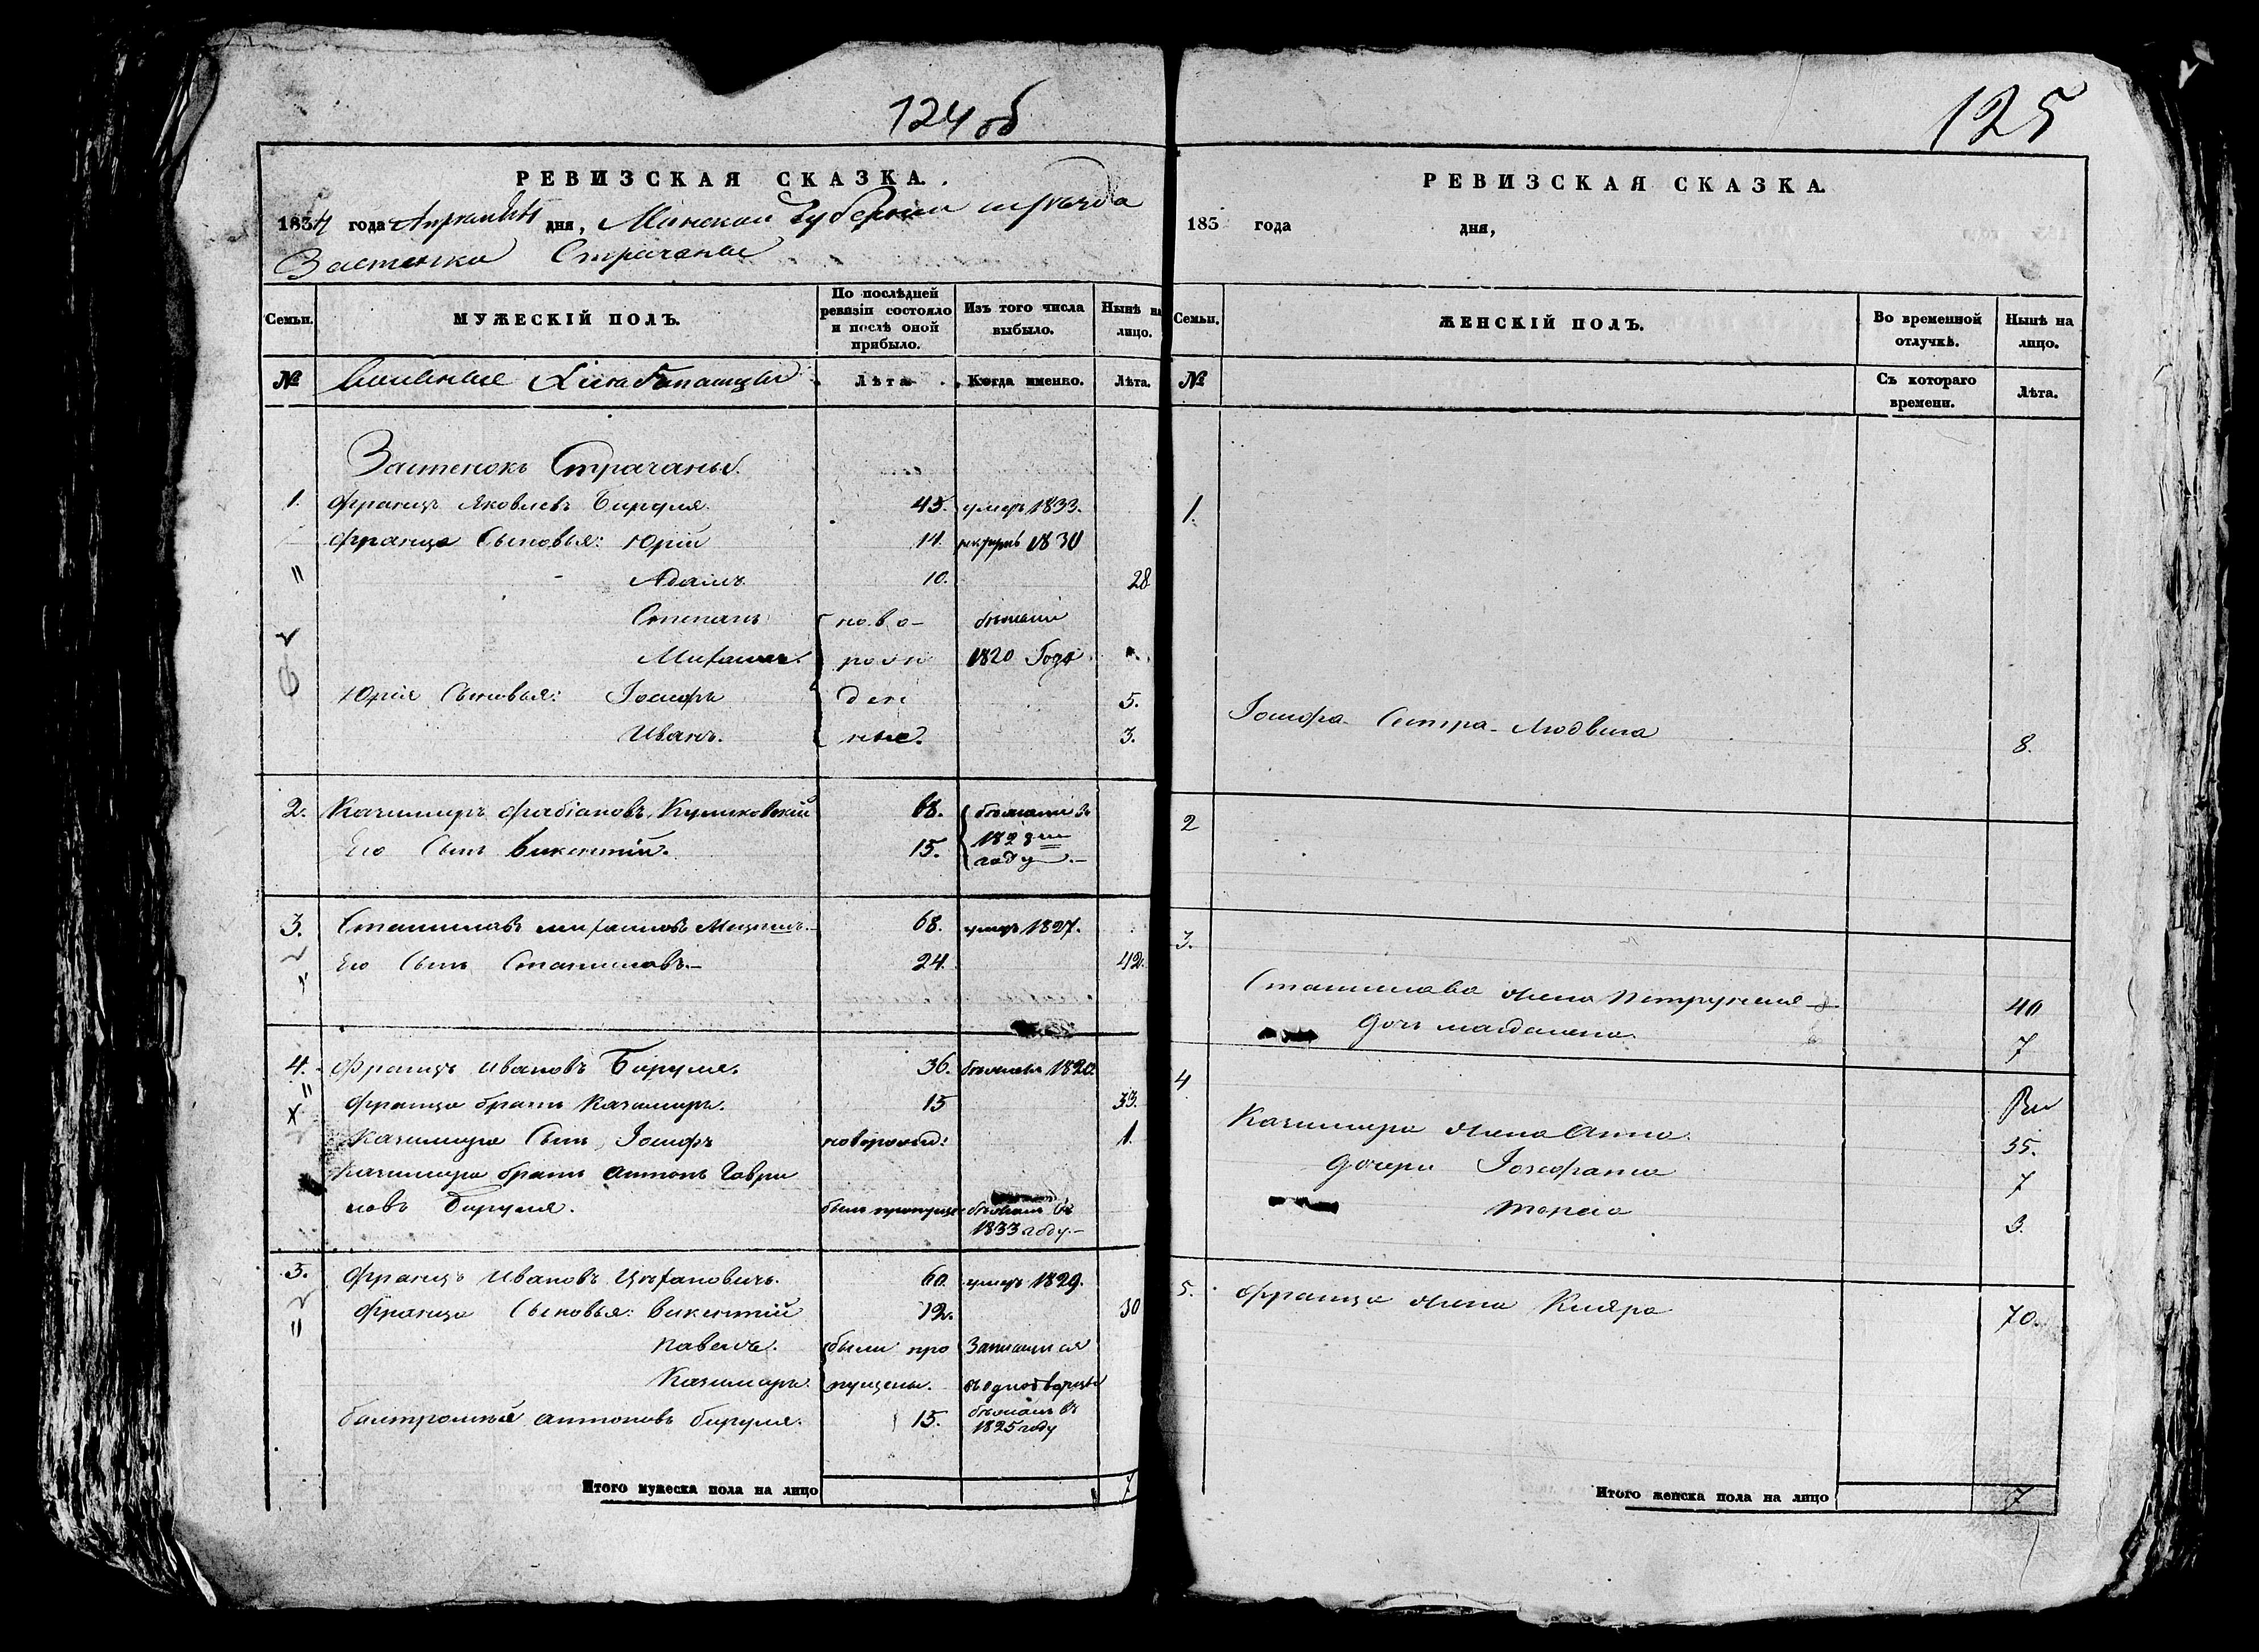 124 об
РЕВИЗСКАЯ СКАЗКА.
1834 года Апреля дня, Минской Губернии и уезда
Застенка Страчанье
Семьи.
МУЖЕСКІЙ ПОЛЪ.
По послѣдней ревизіи состояло и послѣ оной прибыло.
Изъ того числа выбыло.
Нынѣ на лицо.
№
Вольные
Лѣта
Когда именно.
Лѣта.
Застенокъ Страчанье.
1. Францъ Яковлевъ Бируля. 45. умеръ 1833.
Франца Сыновья: Юрій 14. 1830
" Адамъ 10. 28
Степанъ ново- бежали
Михаилъ. рож 1820 Года
Юрія Сыновья: Іосифъ ден 5.
Иванъ. ные. 3.
2. Казимиръ Фабіановъ Куликовскій 68. бежали въ
Его Сынъ Викентій. 15. 1828 году.
3. Станиславъ Михайловъ 68. умеръ 1827.
Его Сынъ Станиславъ. 24. 42.
4. Францъ Ивановъ Бируля. 36. бежалъ 1820.
" Франца братъ Казимиръ. 15 33.
Казимира Сынъ Іосифъ новорожд: 1.
Казимира братъ Антонъ Гаври
ловъ Бируля. былъ пропущ бежалъ въ
1833 году.
5. Францъ Ивановъ Цехановичъ. 60. умеръ 1829.
" Франца Сыновья: Викентій 12. 30
Павелъ. были про Записался
Казимиръ. пущены. въ однодворцы
Антоновъ Бируля. 15. бежалъ въ
1825 году
Итого мужеска пола на лицо 7
125
РЕВИЗСКАЯ СКАЗКА.
183 года дня,
Семьи.
ЖЕНСКІЙ ПОЛЪ.
Во временной отлучкѣ.
Нынѣ на лицо.
№
Съ котораго времени.
Лѣта.
1.
Іосифа Сестра Людвига 8.
2
3.
Станислава жена Петрунеля 40
дочь магдалена. 7
4
Казимира жена Анна. 35.
дочери Іозефата 7
Марія 3.
5. Франца жена Кляра 70.
Итого женска пола на лицо 7